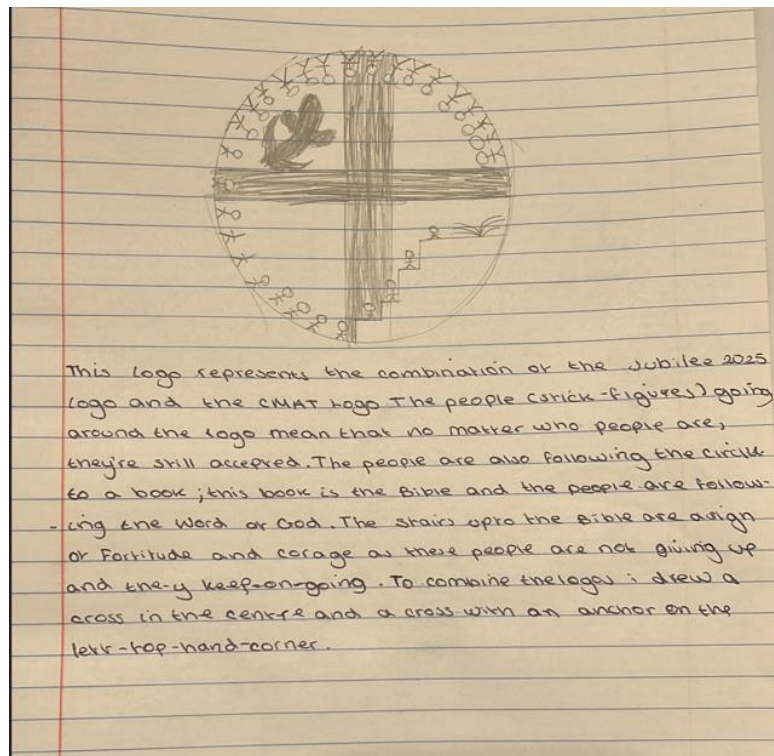 This logo represents the combination of the Jubilee 2025
logo and the CMAT logo. The people (stick-figures) going
around the logo mean that no matter who people are,
they're still accepted. The people are also following the circle
to a book; this book is the Bible and the people are follow-
-ing the Word of God. The stairs upto the Bible are a sign
of Fortitude and corage as these people are not giving up
and the-y keep-on-going. To combine the logos i drew a
cross in the centre and a cross with an anchor on the
left-top-hand-corner.